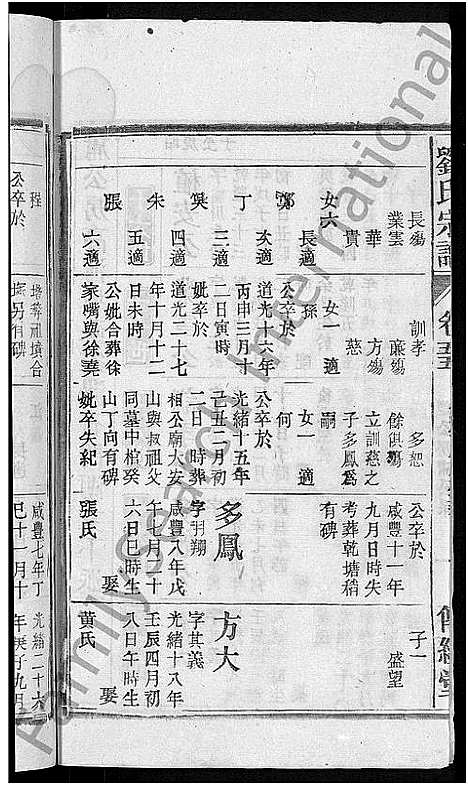 劉氏宗譜
卷五
傳經堂
長殤
業雲
華
貴
女六
長適
鄭
次適
丁
三適
四適
朱
五適
張
六適
訓孝
廉殤
方殤
慈
女一適
孫
公卒於
道光十六年
丙申三月十
二日寅時
妣卒於
道光二十七
年十月十二
日未時
公妣合葬徐
家嘴與徐堯
多恕
餘俱殤
立訓慈之
子多鳳爲
嗣
女一適
何
公卒於
光緒十五年
己丑二月初
二日時葬
相公廟大安
山與叔祖父
同墓中棺癸
山丁向有碑
妣卒失紀
公卒於
咸豐十一年
九月日時失
考葬乾塘稻
有碑
多鳳
字羽翔
咸豐八年戊
午七月二十
六日巳時生
娶
張氏
子一
盛望
方大
字其義
光緒十八年
壬辰四月初
八日午時生
娶
黃氏
程
公卒於
葬祖墳合
另有碑
咸豐七年丁
巳十一月十
光緒二十六
年庚子九月
FamilySearch International